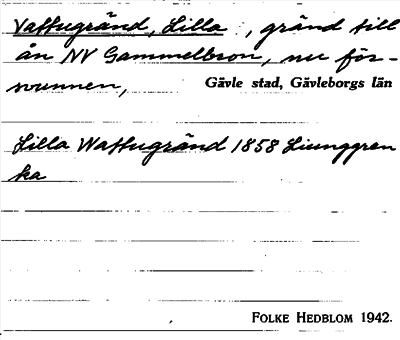 Vattugränd, Lilla, gränd till
ån NV Gammelbron, nu för-
svunnen, Gävle stad, Gävleborgs län
Lilla Wattugränd 1858 Liunggren
ka
FOLKE HEDBLOM 1942.